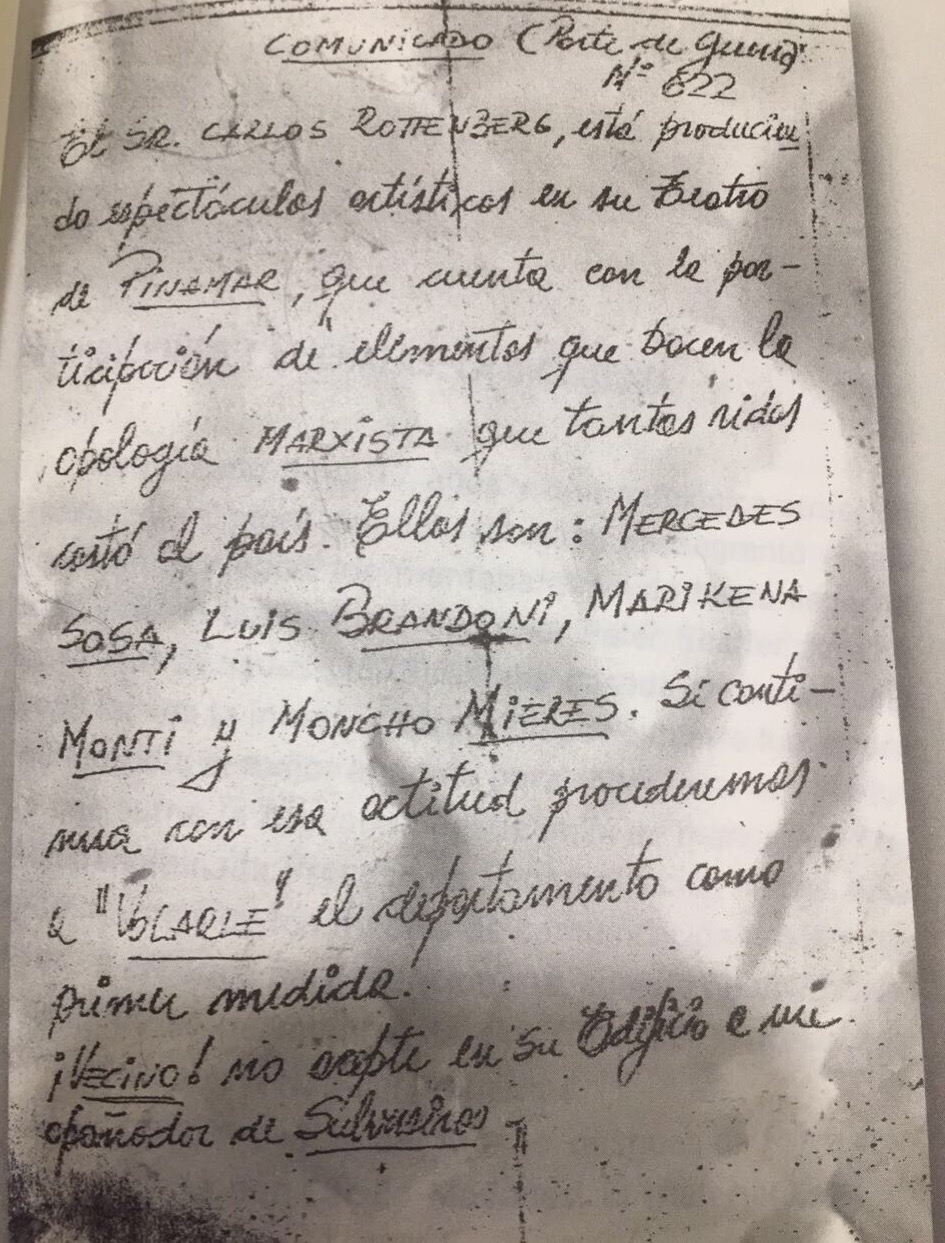 COMUNICADO (Parte de Guerra)
Nº 622
El SR. CARLOS ROTTENBERG, está producien
do espectáculos artísticos en su Teatro
de PINAMAR, que cuenta con la par-
ticipación de elementos que hacen la
apología MARXISTA que tantas vidas
costó al país. Ellos son: MERCEDES
SOSA, LUIS BRANDONI, MARIKENA
MONTI y MONCHO MIERES. Si conti-
nua con esa actitud procederemos
a "VOLARLE" el departamento como
primer medida.
¡VECINO! no acepte en su Edificio a un
apañador de Subversivos